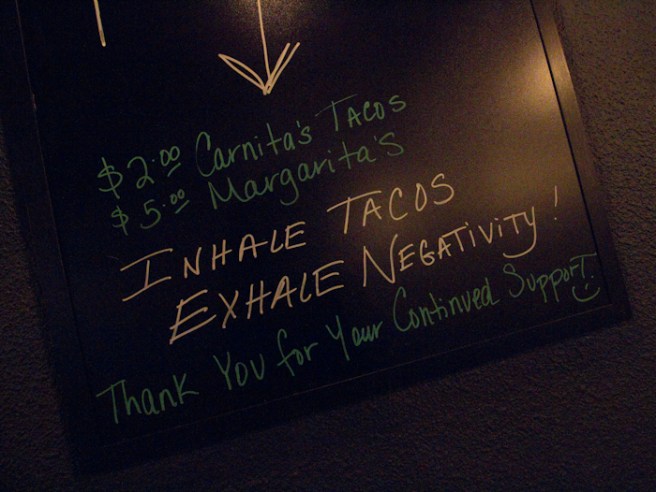 $2.00 Carnita's Tacos
$5.00 Margarita's
INHALE TACOS
EXHALE NEGATIVITY!
Thank You for Your Continued Support.